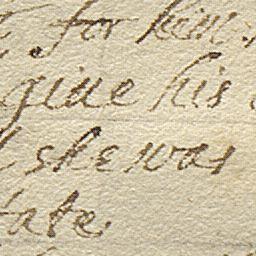 for him.
giue his
she was
tate